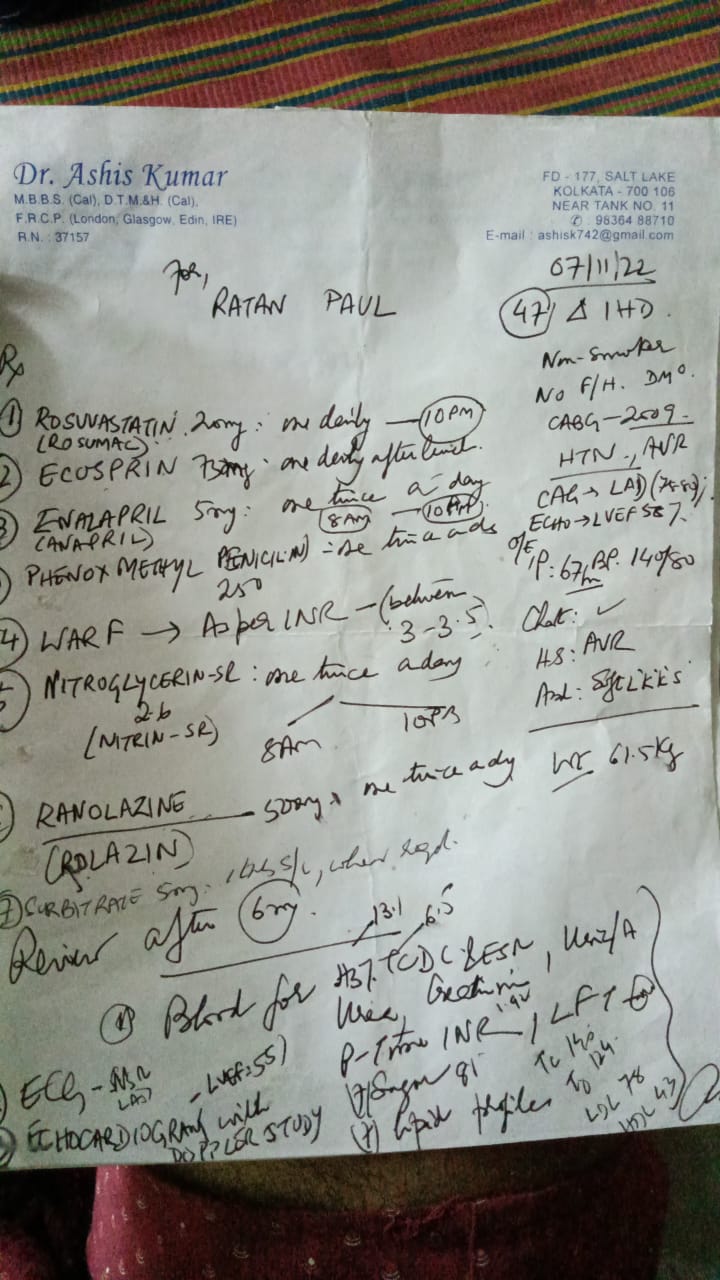 Dr. Ashis Kumar
M.B.B.S. (Cal), D.T.M.&H. (Cal),
F.R.C.P. (London, Glasgow, Edin, IRE)
R.N. : 37157
FD - 177, SALT LAKE
KOLKATA - 700 106
NEAR TANK NO. 11
✆ 98364 88710
E-mail : ashisk742@gmail.com
07/11/22
For,
RATAN PAUL
47 Δ IHD.
Non-Smoker
No F/H. DM°.
CABG - 2009.
HTN, AVR
CAG → LAD
ECHO → LVEF 58%.
O/E
P: 67/m BP. 140/80
Chest: ✓
HS: AVR
Wt 61.5kg
Rx
① ROSUVASTATIN 20mg: one daily — 10PM
(ROSUMAC)
2 ECOSPRIN 75mg: one daily after lunch.
3 ENALAPRIL 5mg: one twice a day
(ANAPRIL) 8AM — 10PM
PHENOXYMETHYL PENICILIN: one twice a day
250
4 WARF → As per INR - (between
3 - 3.5)
5 NITROGLYCERIN-SR: one twice a day
2.6
(NITRIN-SR) 8AM 10PM
RANOLAZINE 500mg one twice a day
(ROLAZIN)
7 SORBITRATE 5mg. S/L, when reqd.
Review after 6m.
13.1 6.5
① Blood for Hb%. TCDC & ESR,
Urea, Creatinine
P-Time INR, LFT
ECG - LVEF=55)
LAD
(F) Sugar 81
TC 140
(F) lipid profiles TG 124
LDL 78
HDL 43
ECHOCARDIOGRAM with
DOPPLER STUDY